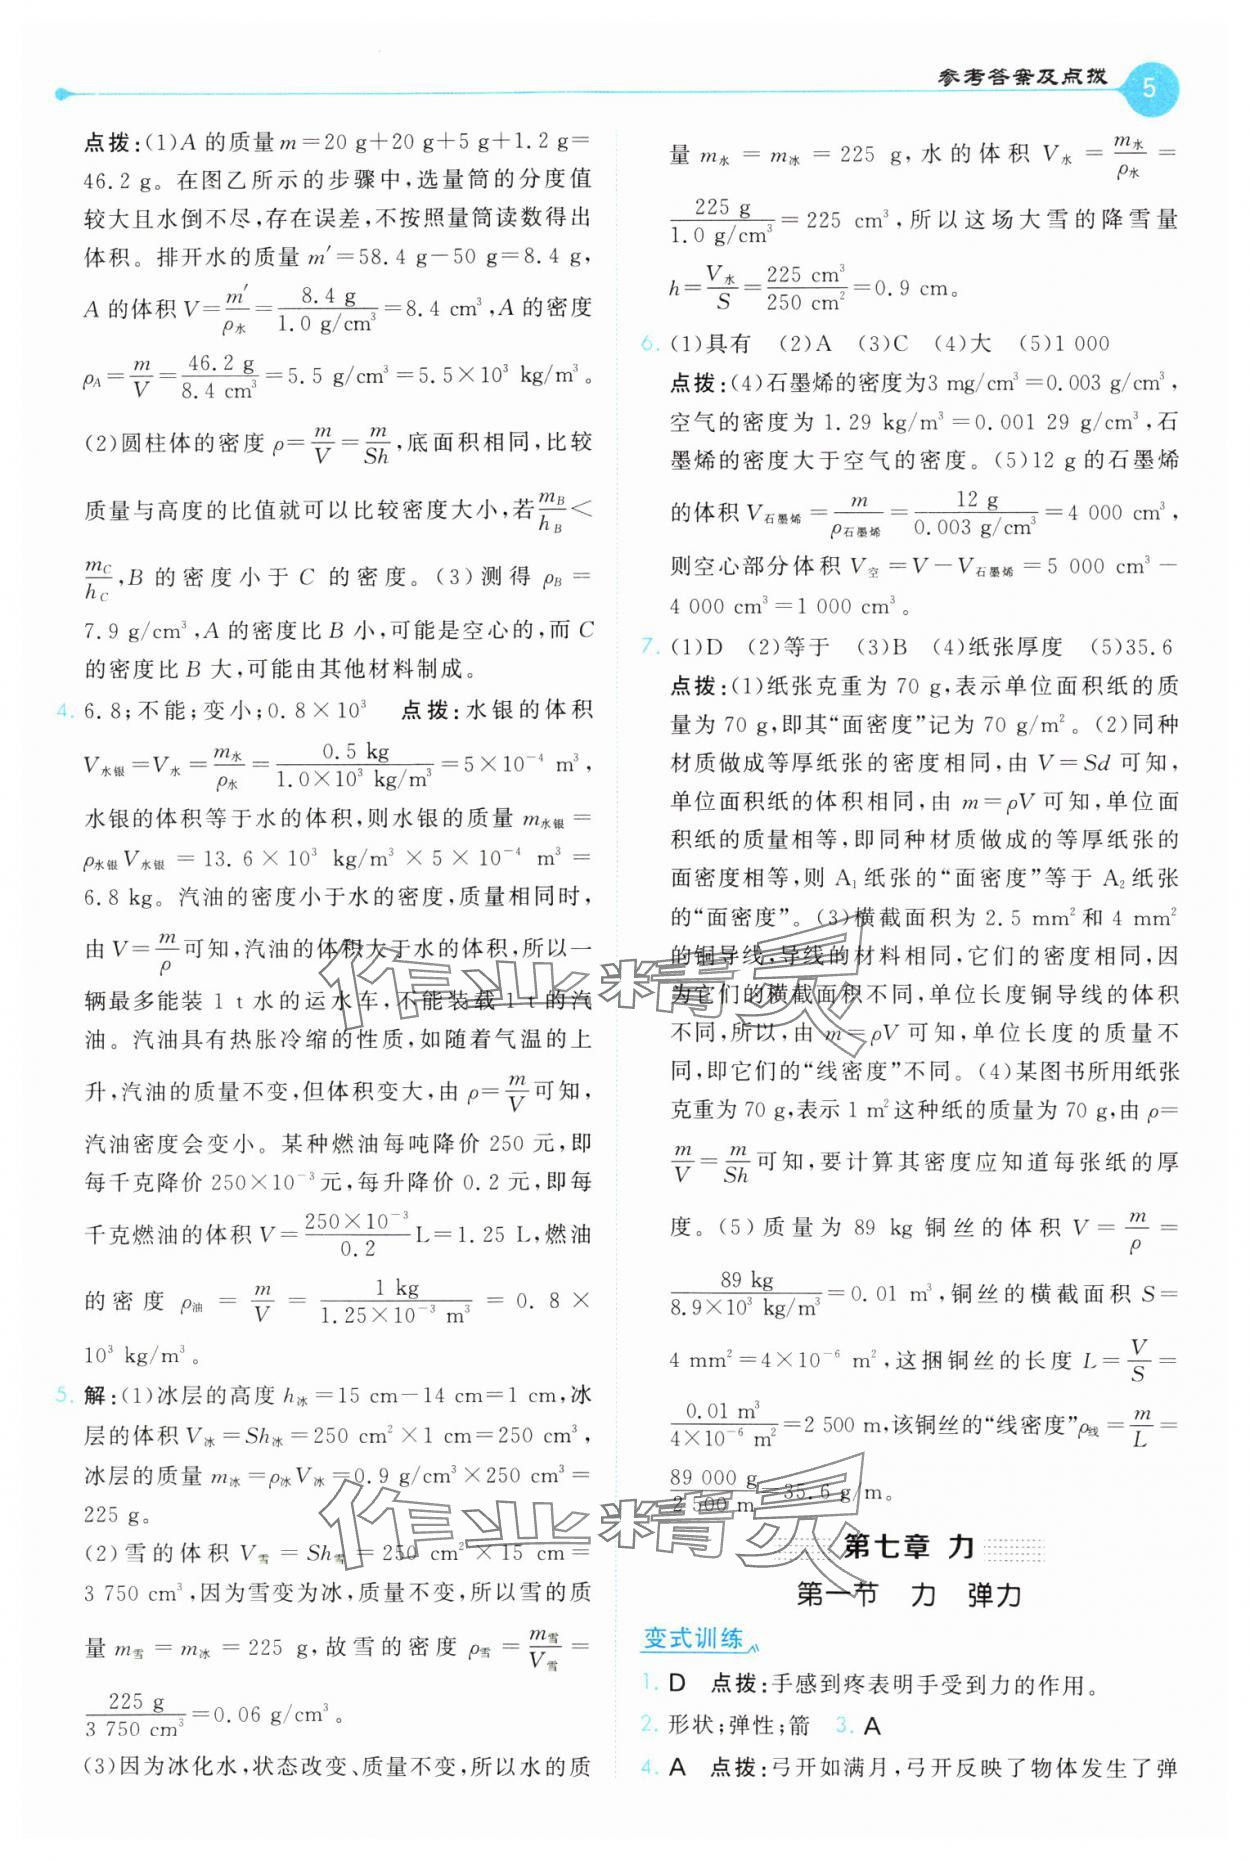 参考答案及点拨 5
点拨:(1)A 的质量 m=20 g+20 g+5 g+1.2 g=
46.2 g。在图乙所示的步骤中,选量筒的分度值
较大且水倒不尽,存在误差,不按照量筒读数得出
体积。排开水的质量 m′=58.4 g−50 g=8.4 g,
A 的体积 V=m′/ρ水=8.4 g/1.0 g/cm³=8.4 cm³,A 的密度
ρA=m/V=46.2 g/8.4 cm³=5.5 g/cm³=5.5×10³ kg/m³。
(2)圆柱体的密度 ρ=m/V=m/Sh,底面积相同,比较
质量与高度的比值就可以比较密度大小,若mB/hB<
mC/hC,B 的密度小于 C 的密度。(3)测得 ρB=
7.9 g/cm³,A 的密度比 B 小,可能是空心的,而 C
的密度比 B 大,可能由其他材料制成。
4. 6.8;不能;变小;0.8×10³ 点拨:水银的体积
V水银=V水=m水/ρ水=0.5 kg/1.0×10³ kg/m³=5×10⁻⁴ m³,
水银的体积等于水的体积,则水银的质量 m水银=
ρ水银V水银=13.6×10³ kg/m³×5×10⁻⁴ m³=
6.8 kg。汽油的密度小于水的密度,质量相同时,
由 V=m/ρ可知,汽油的体积大于水的体积,所以一
辆最多能装 1 t 水的运水车,不能装载 1 t 的汽
油。汽油具有热胀冷缩的性质,如随着气温的上
升,汽油的质量不变,但体积变大,由 ρ=m/V可知,
汽油密度会变小。某种燃油每吨降价 250 元,即
每千克降价 250×10⁻³元,每升降价 0.2 元,即每
千克燃油的体积 V=250×10⁻³/0.2 L=1.25 L,燃油
的密度 ρ油=m/V=1 kg/1.25×10⁻³ m³=0.8×
10³ kg/m³。
5. 解:(1)冰层的高度 h冰=15 cm−14 cm=1 cm,冰
层的体积 V冰=Sh冰=250 cm²×1 cm=250 cm³,
冰层的质量 m冰=ρ冰V冰=0.9 g/cm³×250 cm³=
225 g。
(2)雪的体积 V雪=Sh雪=250 cm²×15 cm=
3 750 cm³,因为雪变为冰,质量不变,所以雪的质
量 m雪=m冰=225 g,故雪的密度 ρ雪=m雪/V雪=
225 g/3 750 cm³=0.06 g/cm³。
(3)因为冰化水,状态改变、质量不变,所以水的质
量 m水=m冰=225 g,水的体积 V水=m水/ρ水=
225 g/1.0 g/cm³=225 cm³,所以这场大雪的降雪量
h=V水/S=225 cm³/250 cm²=0.9 cm。
6. (1)具有 (2)A (3)C (4)大 (5)1 000
点拨:(4)石墨烯的密度为3 mg/cm³=0.003 g/cm³,
空气的密度为 1.29 kg/m³=0.001 29 g/cm³,石
墨烯的密度大于空气的密度。(5)12 g的石墨烯
的体积 V石墨烯=m/ρ石墨烯=12 g/0.003 g/cm³=4 000 cm³,
则空心部分体积 V空=V−V石墨烯=5 000 cm³−
4 000 cm³=1 000 cm³。
7. (1)D (2)等于 (3)B (4)纸张厚度 (5)35.6
点拨:(1)纸张克重为 70 g,表示单位面积纸的质
量为 70 g,即其“面密度”记为 70 g/m²。(2)同种
材质做成等厚纸张的密度相同,由 V=Sd 可知,
单位面积纸的体积相同,由 m=ρV 可知,单位面
积纸的质量相等,即同种材质做成的等厚纸张的
面密度相等,则 A₁ 纸张的“面密度”等于 A₂ 纸张
的“面密度”。(3)横截面积为 2.5 mm²和 4 mm²
的铜导线,导线的材料相同,它们的密度相同,因
为它们的横截面积不同,单位长度铜导线的体积
不同,所以,由 m=ρV 可知,单位长度的质量不
同,即它们的“线密度”不同。(4)某图书所用纸张
克重为 70 g,表示 1 m²这种纸的质量为 70 g,由 ρ=
m/V=m/Sh可知,要计算其密度应知道每张纸的厚
度。(5)质量为 89 kg 铜丝的体积 V=m/ρ=
89 kg/8.9×10³ kg/m³=0.01 m³,铜丝的横截面积 S=
4 mm²=4×10⁻⁶ m²,这捆铜丝的长度 L=V/S=
0.01 m³/4×10⁻⁶ m²=2 500 m,该铜丝的“线密度”ρ线=m/L=
89 000 g/2 500 m=35.6 g/m。
第七章 力
第一节 力 弹力
变式训练
1. D 点拨:手感到疼表明手受到力的作用。
2. 形状;弹性;箭 3. A
4. A 点拨:弓开如满月,弓开反映了物体发生了弹
作业精灵
作业精灵